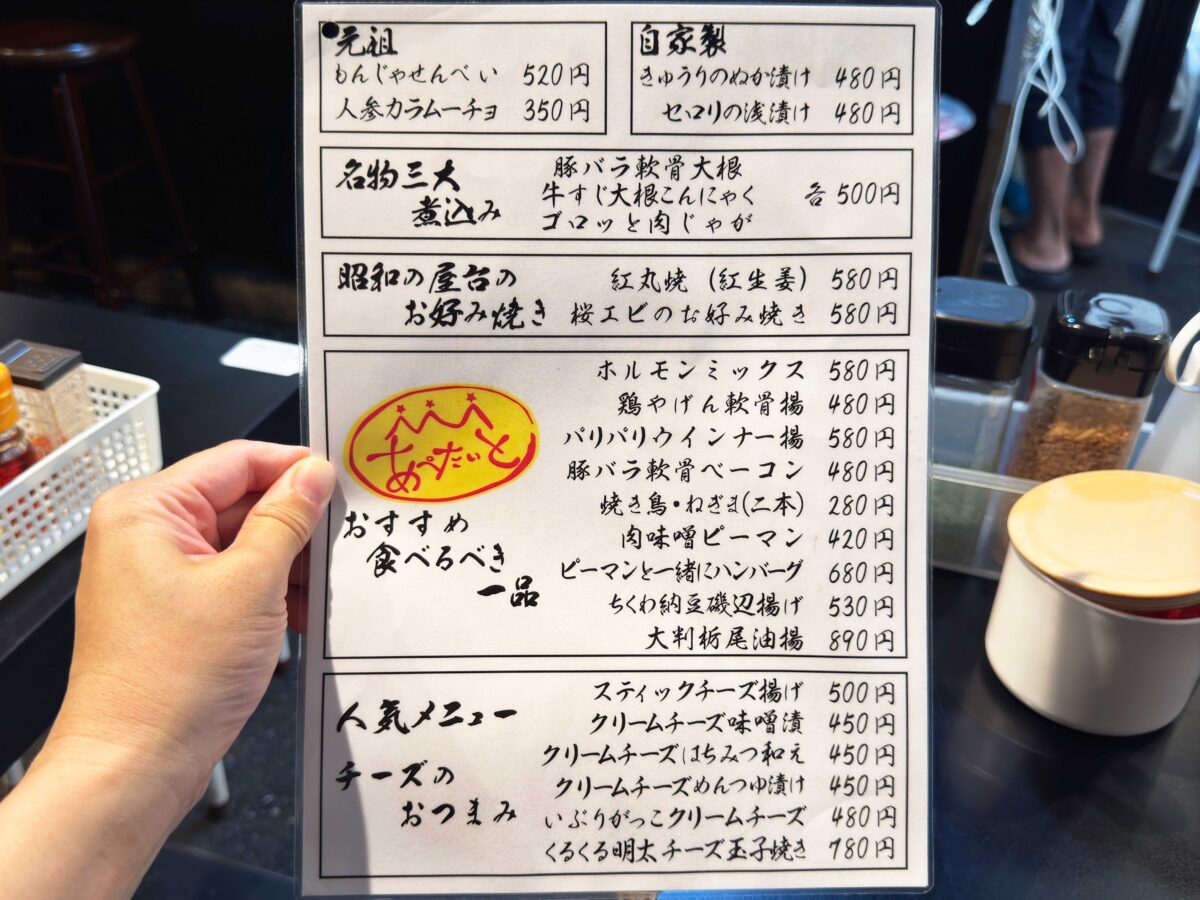 元祖
もんじゃせんべい 520円
人参カラムーチョ 350円
自家製
きゅうりのぬか漬け 480円
セロリの浅漬け 480円
名物三大
煮込み
豚バラ軟骨大根
牛すじ大根こんにゃく 各500円
ゴロッと肉じゃが
昭和の屋台の
お好み焼き
紅丸焼(紅生姜) 580円
桜エビのお好み焼き 580円
あぺたいと
おすすめ
食べるべき
一品
ホルモンミックス 580円
鶏やげん軟骨揚 480円
パリパリウインナー揚 580円
豚バラ軟骨ベーコン 480円
焼き鳥・ねぎま(二本) 280円
肉味噌ピーマン 420円
ピーマンと一緒にハンバーグ 680円
ちくわ納豆磯辺揚げ 530円
大判栃尾油揚 890円
人気メニュー
チーズの
おつまみ
スティックチーズ揚げ 500円
クリームチーズ味噌漬 450円
クリームチーズはちみつ和え 450円
クリームチーズめんつゆ漬け 450円
いぶりがっこクリームチーズ 480円
くるくる明太チーズ玉子焼き 780円